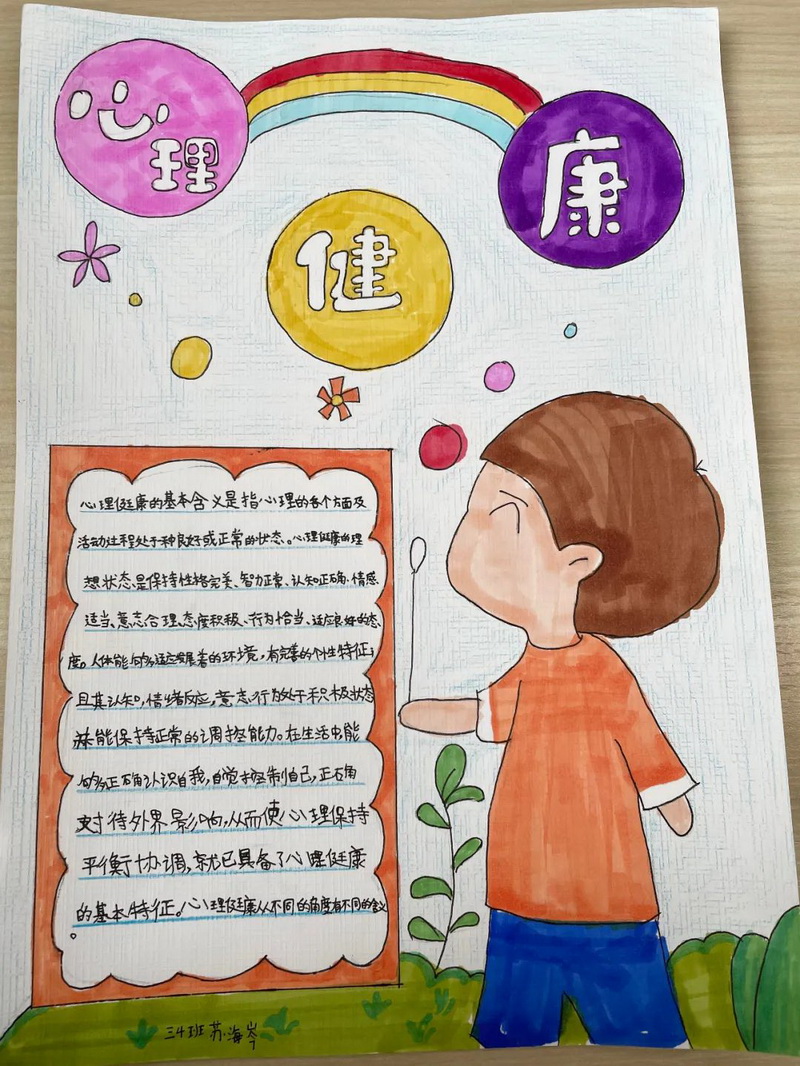 心理
健
康
心理健康的基本含义是指心理的各个方面及
活动过程处于一种良好或正常的状态。心理健康的理
想状态是保持性格完美、智力正常、认知正确、情感
适当、意志合理、态度积极、行为恰当、适应良好的态
度。人体能够适应发展着的环境，有完善的个性特征；
且其认知，情绪反应，意志行为处于积极状态
并能保持正常的调控能力。在生活中，能
够正确认识自我，自觉控制自己，正确
对待外界影响，从而使心理保持
平衡协调，就已具备了心理健康
的基本特征。心理健康从不同的角度有不同的含义
。
三4班 苏海岑